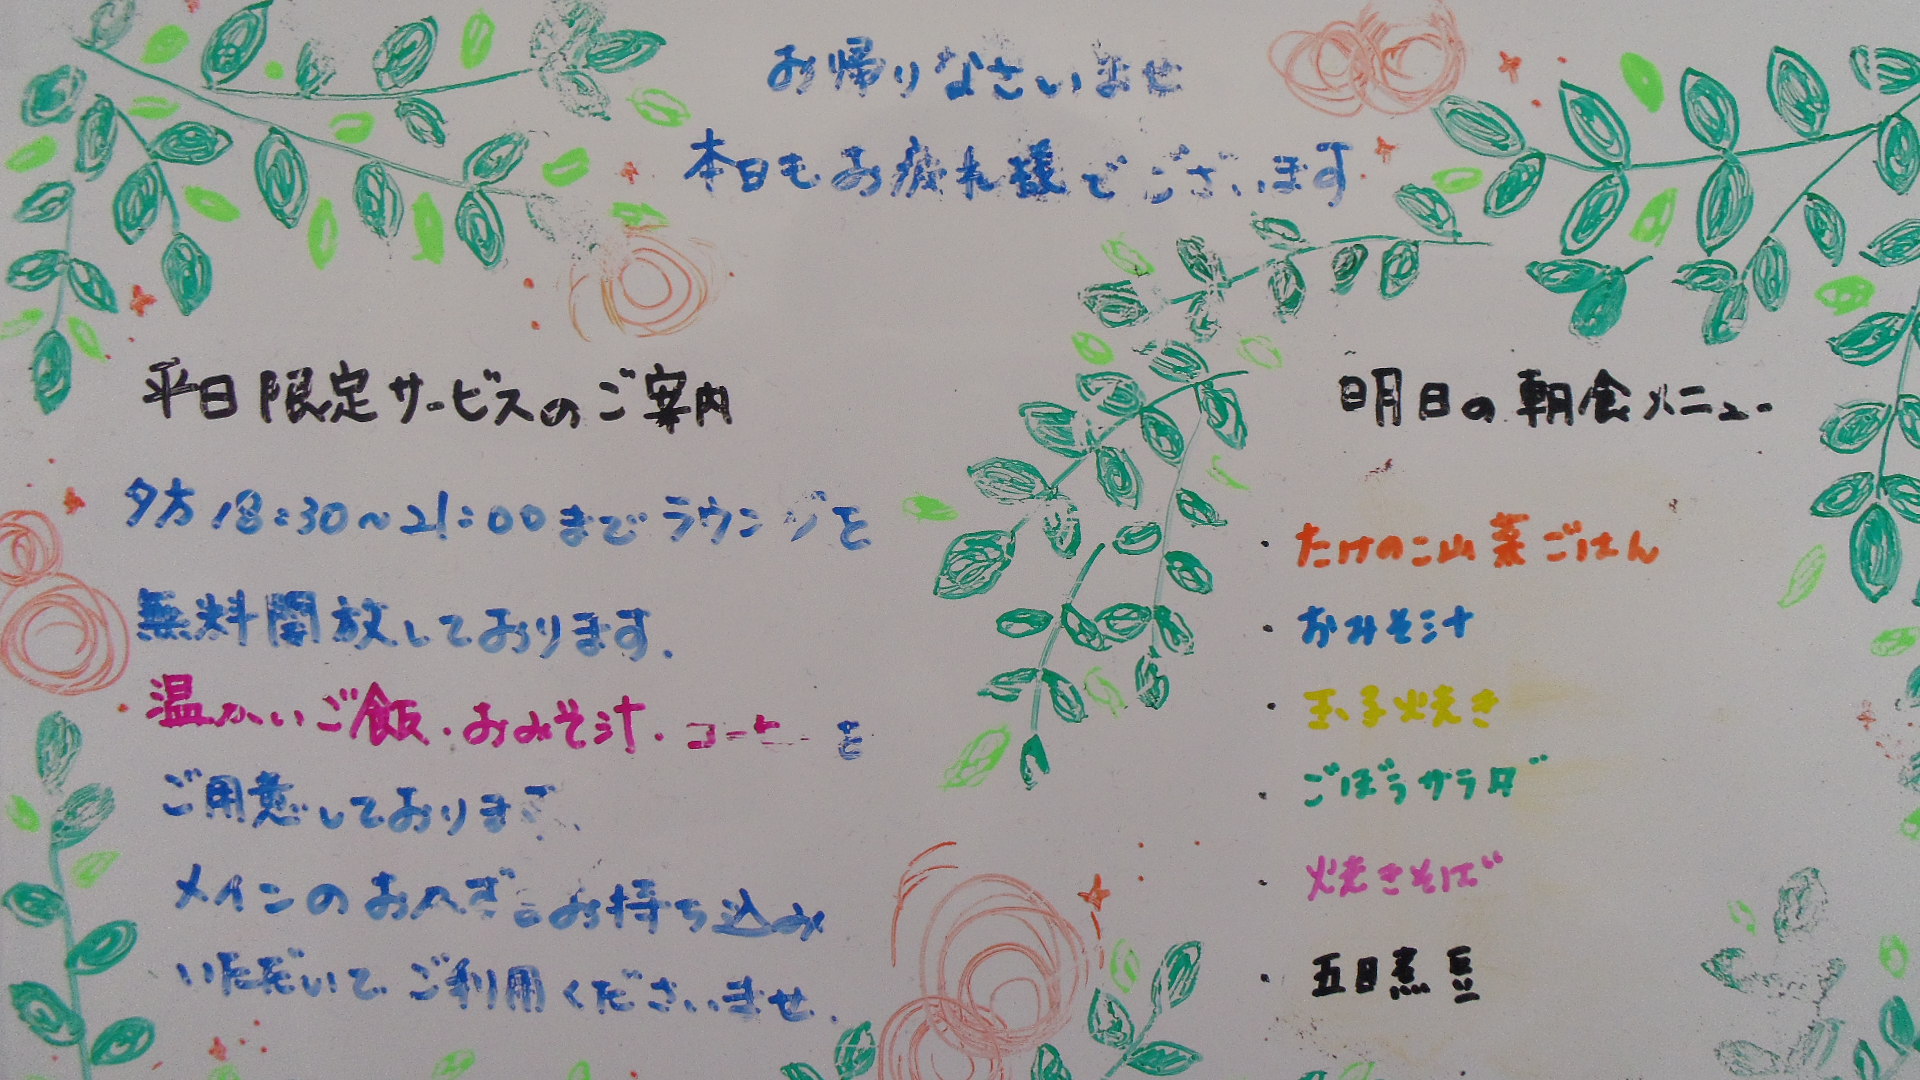 お帰りなさいませ
本日もお疲れ様でございます
平日限定サービスのご案内
夕方18:30~21:00までラウンジを
無料開放しております.
温かいご飯・おみそ汁・コーヒーを
ご用意しております.
メインのおかずはお持ち込み
いただいてご利用くださいませ.
明日の朝食メニュー
・たけのこ山菜ごはん
・おみそ汁
・玉子焼き
・ごぼうサラダ
・焼きそば
・五目煮豆